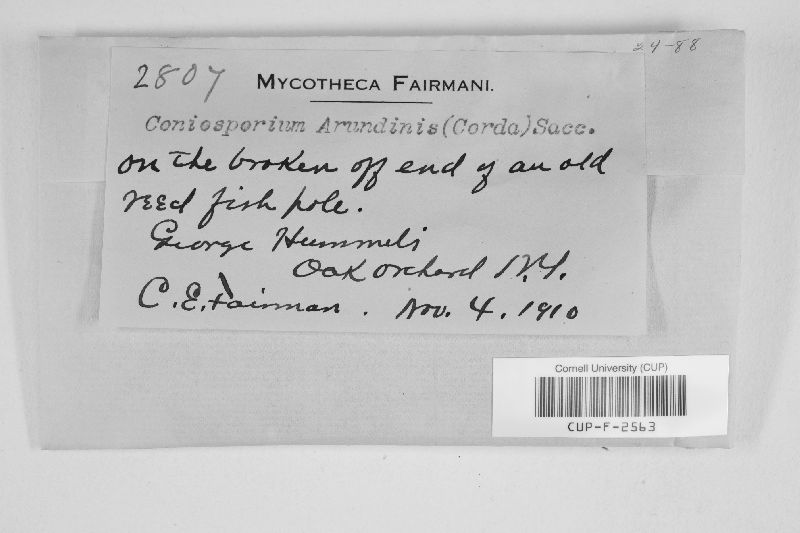 24-88
2807 MYCOTHECA FAIRMANI.
Coniosporium Arundinis (Corda) Sacc.
on the broken off end of an old
reed fish pole.
George Hummels
Oak orchard N.Y.
C. E. Fairman. Nov. 4. 1910
Cornell University (CUP)
CUP-F-2563